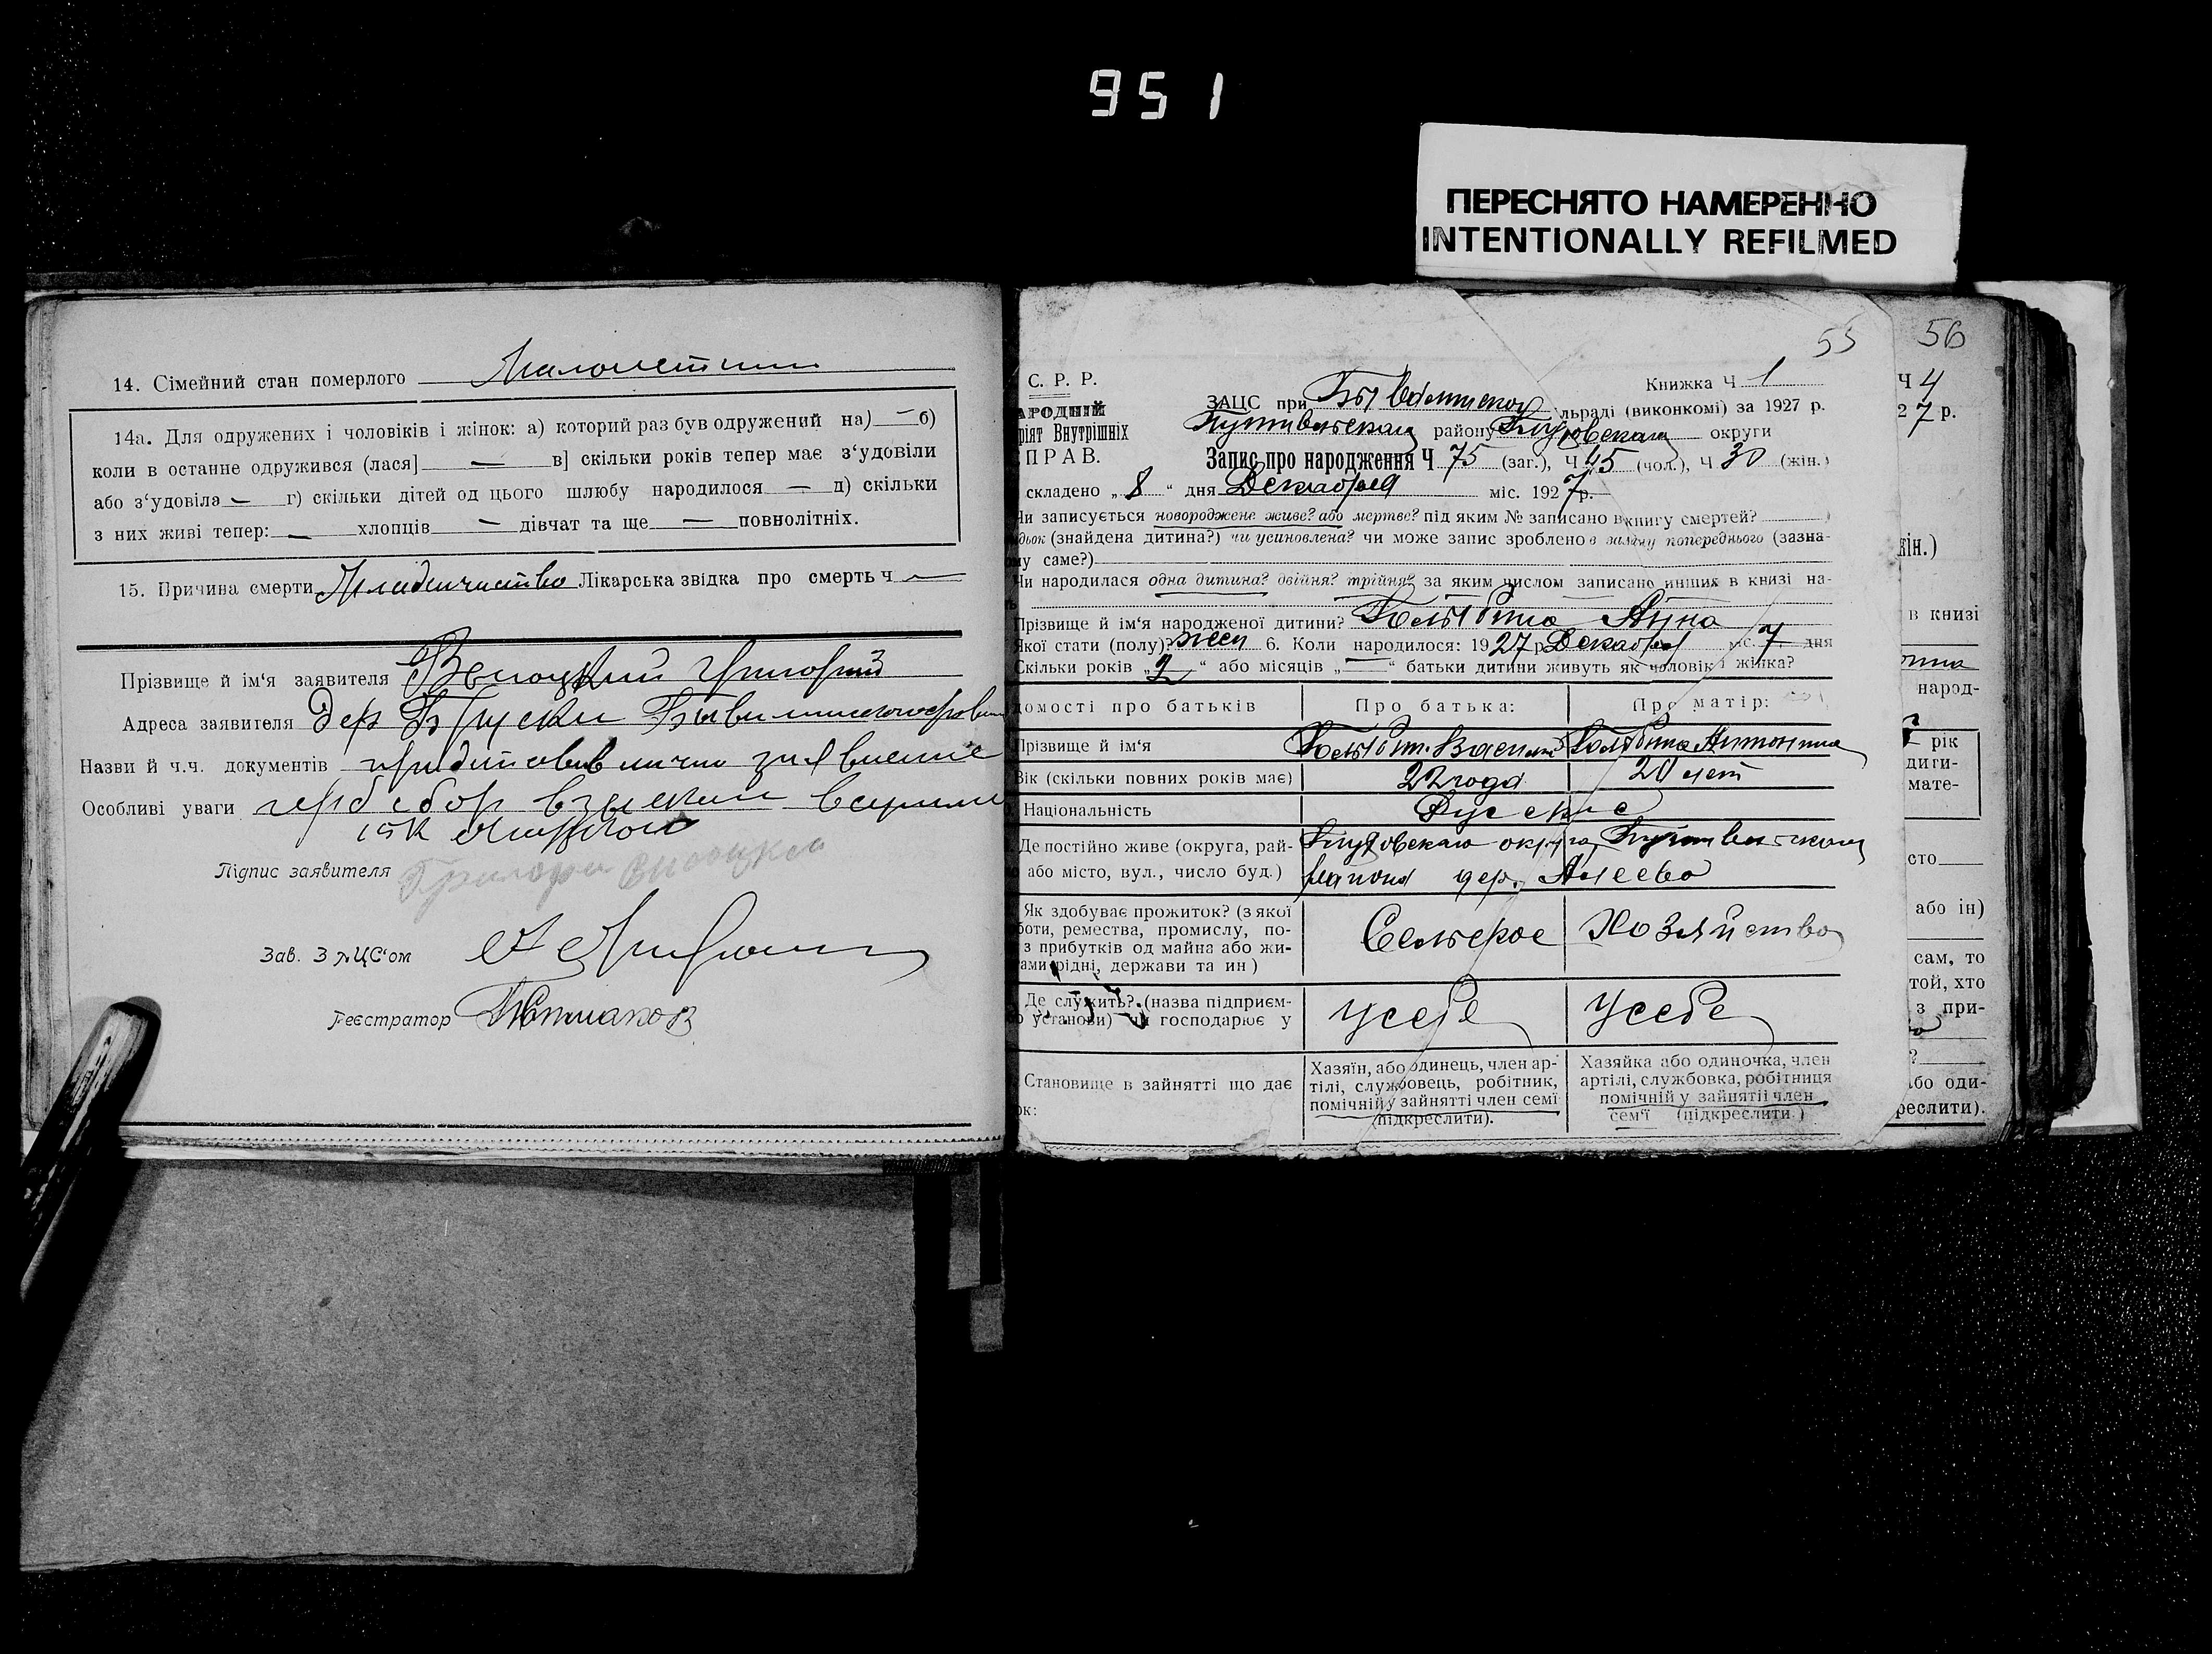 951
ПЕРЕСНЯТО НАМЕРЕННО
INTENTIONALLY REFILMED
14. Сімейний стан померлого Малолетний
14а. Для одружених і чоловіків і жінок: а) которий раз був одружений на) — б)
коли в останне одружився (лася] — в] скільки років тепер має з‘удовіли
або з‘удовіла — г) скільки дітей од цього шлюбу народилося — д) скільки
з них живі тепер: — хлопців — дівчат та ще — повнолітніх.
15. Причина смерти Младенчество Лікарська звідка про смерть ч —
Прізвище й ім‘я заявителя Высоцкий Григорий
Адреса заявителя дер
Назви й ч.ч. документів лично заявление
Особливі уваги герб сбор взыскан в сумме
15 к
Підпис заявителя
Зав. ЗАЦС‘ом
Реєстратор
55
С. Р. Р.
Книжка Ч 1
АРОДНІЙ
ЗАЦС при льраді (виконкомі) за 1927 р.
ріят Внутрішніх
Путивльского району Глуховской округи
ПРАВ.
Запис про народження Ч 75 (заг.), Ч 45 (чол.), Ч 30 (жін.)
складено „8“ дня Декабря міс. 1927 р.
Чи записується новороджене живе? або мертве? під яким № записано в книгу смертей?
дьок (знайдена дитина?) чи усиновлена? чи може запис зроблено в заміну попереднього (зазна-
му саме?)
Чи народилася одна дитина? двійня? трійня? за яким числом записано инших в книзі на-
Прізвище й ім‘я народженої дитини? Анна
Якої стати (полу)? жен 6. Коли народилося: 1927 р Декабря міс. 7 дня
Скільки років „2“ або місяців „—“ батьки дитини живуть як чоловік і жінка?
домості про батьків
Про батька:
Про матір:
Прізвище й ім‘я
Василий
Антонина
Вік (скільки повних років має)
22 года
20 лет
Національність
Русские
Де постійно живе (округа, рай-
або місто, вул., число буд.)
Глуховская округа, Путивльского
района дер. Алеево
Як здобуває прожиток? (з якої
боти, ремества, промислу, по-
з прибутків од майна або жи-
ами рідні, держави та ин)
Сельское Хозяйство
Де служить? (назва підприєм-
о установи) чи господарює у
У себе
У себе
Становище в зайнятті що дає
ок:
Хазяїн, або одинець, член ар-
тілі, службовець, робітник,
помічній у зайнятті член семі
(підкреслити).
Хазяйка або одиночка, член
артілі, службовка, робітниця
помічній у зайнятіі член
сем‘ї (підкреслити)
56
Ч 4
27 р.
жін.)
в книзі
народ-
рік
дити-
мате-
сто
або ін)
сам, то
той, хто
з при-
?
або оди-
реслити).